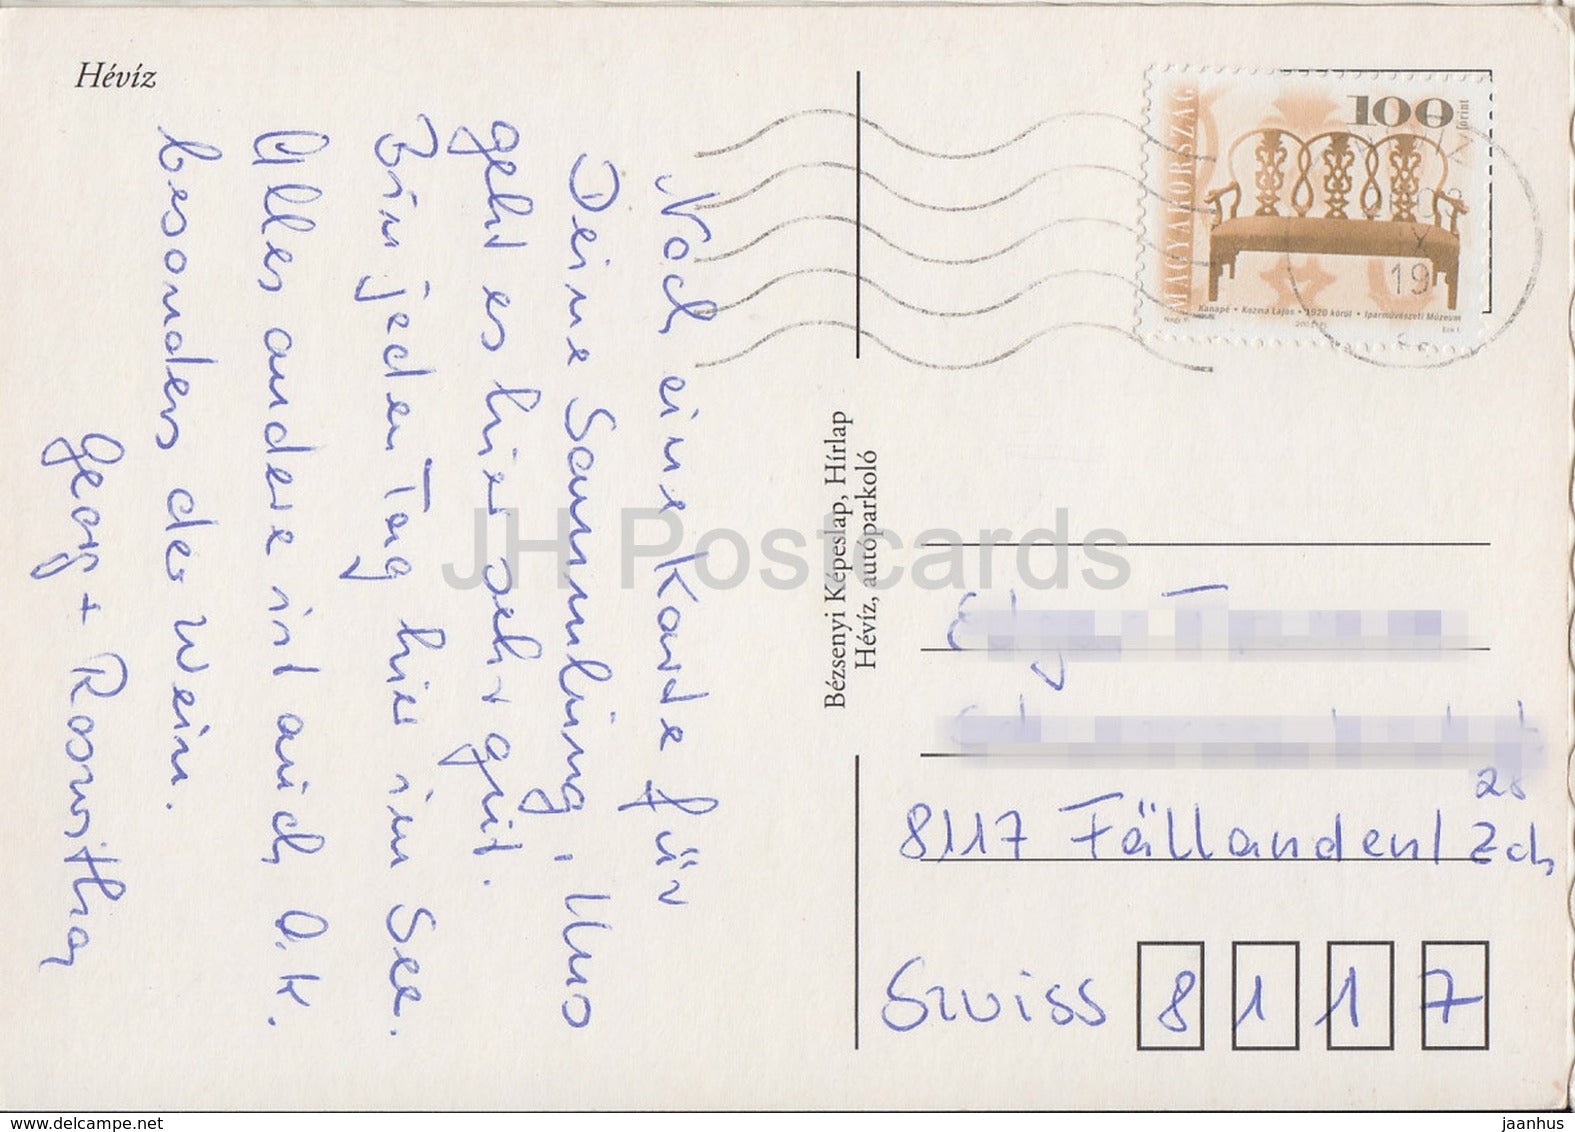 Hévíz
Noch eine Karte für
Deine Sammlung, Uns
geht es hier sehr gut.
Bin jeden Tag hier im See.
Alles andere ist auch O.K.
besonders der Wein.
Georg + Roswitha
Bézsenyi Képeslap, Hírlap
Hévíz, autóparkoló
MAGYARORSZÁG
100
forint
Kanapé • Kozma Lajos • 1920 körül • Iparművészeti Múzeum
19
28
8117 Fällanden / Zch
Swiss 8 1 1 7
JH Postcards
www.delcampe.net
jaanhus